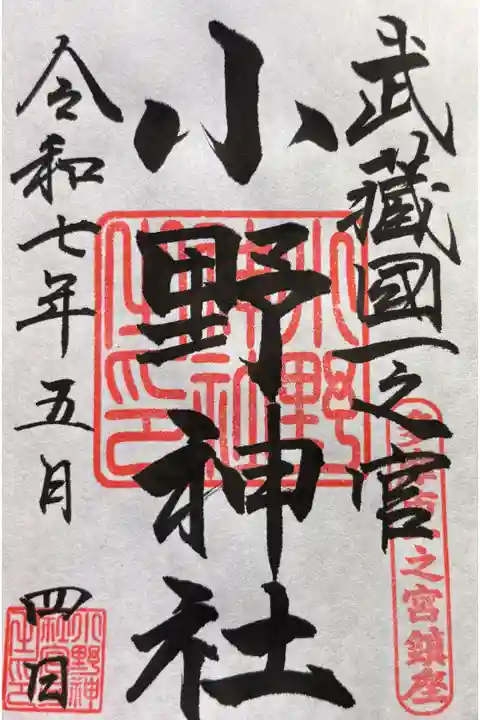 武藏國一之宮
小野神社
令和七年五月四日
小野神社之印
之宮鎮座